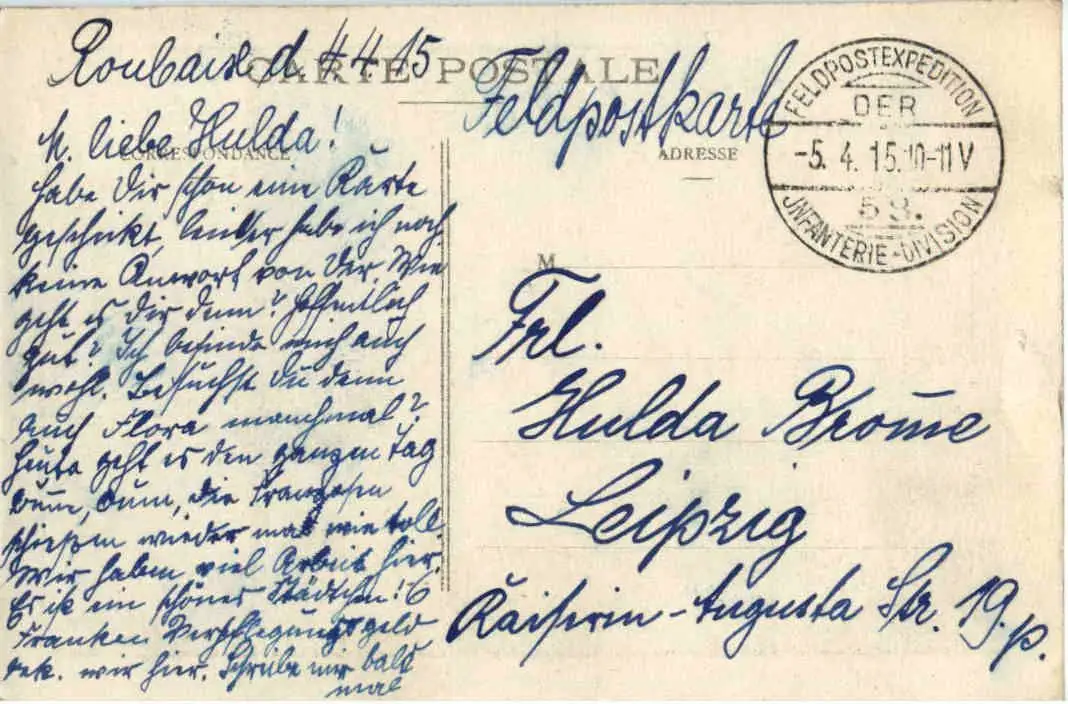 Roubaix d 4.4.15
CARTE POSTALE
Feldpostkarte
CORRESPONDANCE
ADRESSE
FELDPOSTEXPEDITION
DER
-5. 4. 15. 10-11 V
58.
INFANTERIE-DIVISION
M. liebe Hulda!
habe Dir schon eine Karte
geschickt, leider habe ich noch
keine Antwort von Dir. Wie
geht es Dir denn? Hoffentlich
gut? Ich befinde mich auch
wohl. Besuchst Du denn
auch Flora manchmal?
Heute geht es den ganzen Tag
bum, bum, die Franzosen
schießen wieder mal wie toll.
Wir haben viel Arbeit hier.
Es ist ein schönes Städtchen! 6
Franken Verpflegungsgeld
bek. wir hier. Schreibe mir bald
mal
M
Frl.
Hulda Brome
Leipzig
Kaiserin-Augusta Str. 19. p.